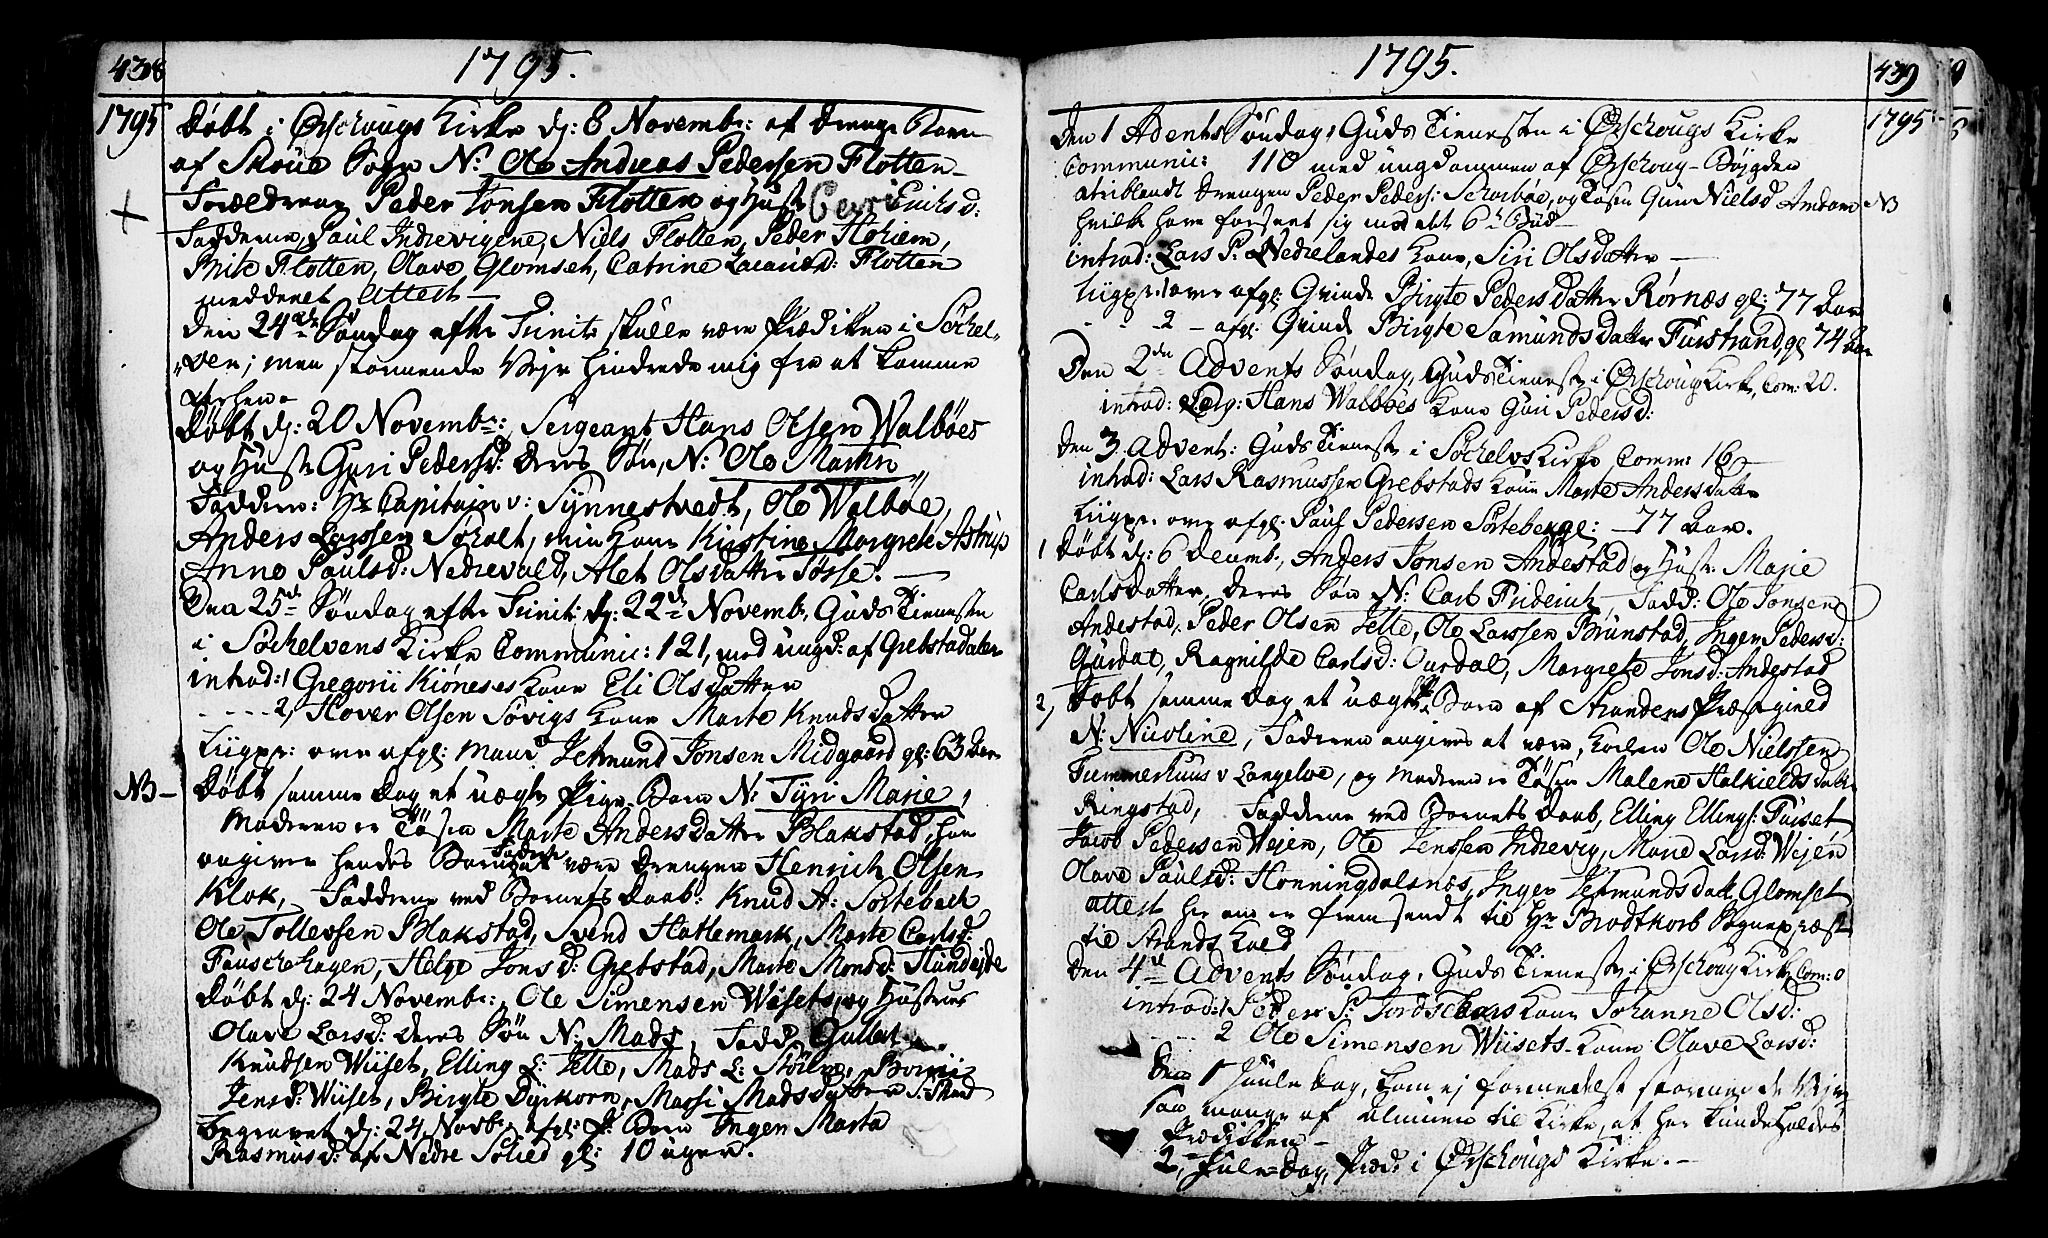 438
1795.
1795
Døbt i Ørschougs Kirke d: 8 Novembr: et Drenge Barn
af Skoue Sogn N: Ole Andreas Pedersen Flotten
Forældrene Peder Jonsen Flotten og Hust: Berit Erichsd:
Fadderne, Paul Indrevigene, Niels Flotten, Peder
Brite Flotten, Olave Glomset, Catrine Flotten
meddeelt Attest
Den 24de Søndag efter Trinit: skulle være Prædiken i Søchel-
ven; men stormende Vejr hindrede mig fra at komme
derhen
Døbt d: 20 Novembr:, Sergeant Hans Olsen Walbøes
og Hust: Guri Pedersd: deres Søn, N: Ole Martin
Faddere: Hr Capitain v: Synnestvedt, Ole Walbøe,
Anders Larssen Søholt, min Kone Kirstine Margrete Astrup
Anne Paulsd: Nedrevald, Alet Olsdatter Tosse.
Den 25de Søndag efter Trinit: d: 22de Novemb, Guds Tieneste
i Søchelvens Kirke Communic: 121, med ungd: af Grebstadalen
introd: 1 Gregorii Kioneses Kone Eli Olsdatter
2, Hover Olsen Søvigs Kone Marte Knudsdatter
Liigpr: over afgl: Mand Jetmund Jonsen Midgaard gl: 63 Aar
NB- Døbt samme Dag et uægte Pige-Barn N: Tyri Marie,
Moderen er Tøsen Marte Andersdatter Blakstad, hun
angiver hendes Barns Fader at være Drengen Henrich Olsen
Klok, Fadderne ved Barnets Daab: Knud A: Sortebech
Ole Tollefsen Blakstad, Svend Hatlemark, Marte Carlsd:
Fauschehagen, Helge Jonsd: Grebstad, Marte Monsd: Hundejde
Døbt d: 24 Novembr:, Ole Simensen Wiisets og Hustrues
Olave Larsd: deres Søn N: Mads, Fadd,
Knudsen Wiiset, Elling L: Jelle, Mads L: Stølen,
Jensd: Wiiset, Birgte Dyrkorn, Massi Madsdatter
Begravet d: 24 Novbr: afgl: P: Barn Ingen Marta
Rasmusd: af Nedre Solied gl: 10 uger.
1795.
439
1795
Den 1 Advents Søndag, Guds Tieneste i Ørschougs Kirke
Communic: 110 med ungdommen af Ørschoug-Bøjgden
iblandt Drengen Peder Peders: Schorbøe, og Tøsen Guri Nielsd Amdam NB
hvilke have forseet sig mod det 6te Bud
introd: Lars P: Nedrelandes Kone, Siri Olsdatter
Liigpr: 1 over afgl: Qvinde Birgte Pedersdatter Rørnæs gl: 77 Aar
2 - afgl: Qvinde Birgte Samundsdatter Furstrand, gl 74 Aar
Den 2den Advents Søndag, Guds Tieneste i Ørschoug Kirke, Com: 20.
introd: Serg: Hans Walbøes Kone Guri Pedersd:
Den 3 Advent: Guds Tieneste i Søchelvs Kirke Comm: 16
introd: Lars Rasmussen Grebstads Kone Marte Andersdatter
Liigpr: over afgl: Paul Pedersen Sortebech gl: 77 Aar.
1 Døbt d: 6 Decemb:, Anders Jonsen Andestad og Hust: Marie
Carlsdatter, deres Søn N: Carl Friderich, Fadd: Ole Jonsen
Andestad, Peder Olsen Jelle, Ole Larssen Brunstad, Ingen Pedersd:
Gurdal, Ragnilde Carlsd: Ourdal, Margrete Jonsd: Andestad
2, Døbt samme Dag et uægte Barn af Strandens Præstegield
N: Nicoline, Faderen angives at være, Ole Nielssen
Tummerhuus v Langelve, og Moderen er Tøsen Malene Halkieldsdatter
Ringstad, Fadderne ved Barnets Daab, Elling Ellings: Furset
Jacob Pedersen Wejen, Ole Jenssen Indrevig, Marie Larsd: Wejen
Olave Paulsd: Honningdalsnæs, Inger Jetmundsdatt Glomset
attest her om er fremsendt til Hr Brodtkorb Sognepræst
til Strands Kald
Den 4de Advents Søndag, Guds Tieneste i Ørschoug Kirke, Com: 0
introd: 1 Peder P: Kone Johanne Olsd:
2 Ole Simensen Wiisets Kone Olave Larsd:
Den 1 Juule Dag, kom ej formedelst stormende Vejr
saa mange af Almuen til Kirke, at her kunde holdes
Prædikken
2, Jule-Dag, Præd: i Ørschougs Kirke.